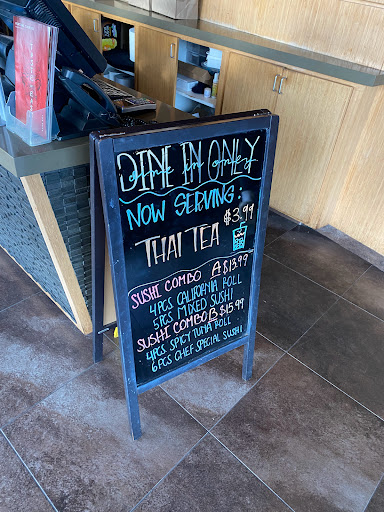 DINE IN ONLY
dine in only
NOW SERVING:
$3.99
THAI TEA
SUSHI COMBO A $13.99
4PCS CALIFORNIA ROLL
5PCS MIXED SUSHI
SUSHI COMBO B $15.99
4PCS SPICY TUNA ROLL
6PCS CHEF SPECIAL SUSHI